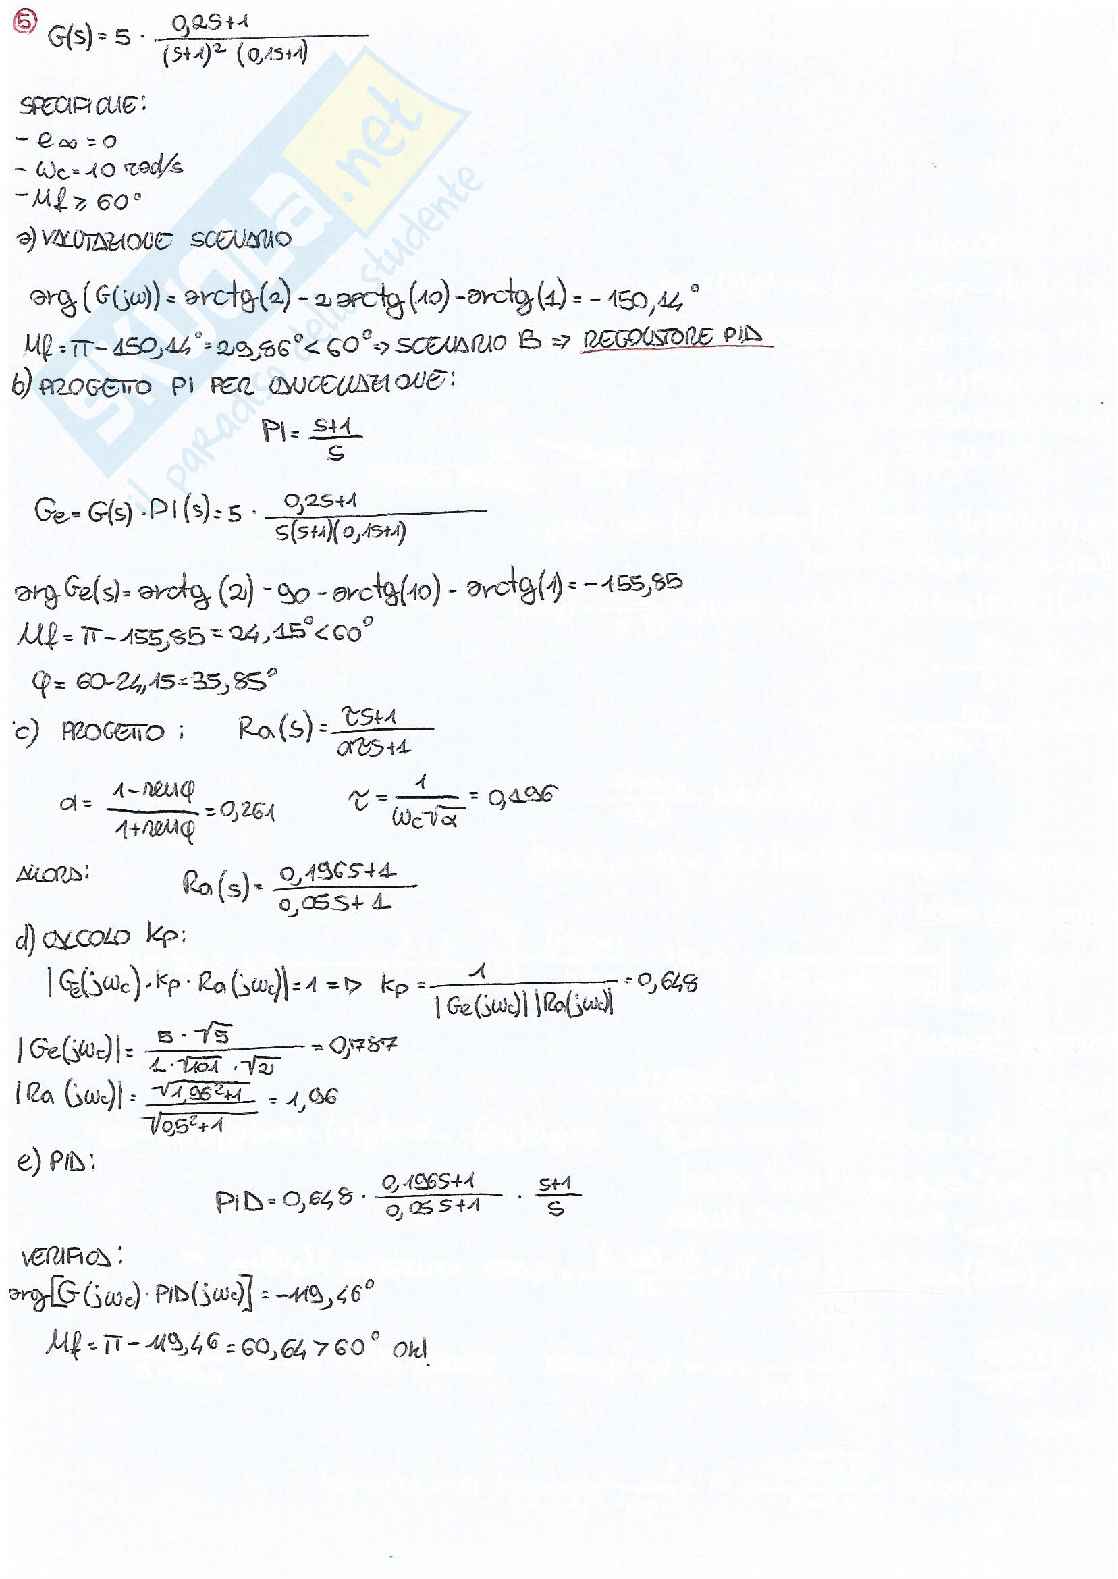 5
G(s) = 5 · (0,2s+1) / ((s+1)² (0,1s+1))
SPECIFICHE:
- e∞ = 0
- ωc = 10 rad/s
- Mf ≥ 60°
a) VALUTAZIONE SCENARIO
arg(G(jω)) = arctg(2) - 2arctg(10) - arctg(1) = -150,14°
Mf = π - 150,14° = 29,86° < 60° ⇒ SCENARIO B ⇒ REGOLATORE PID
b) PROGETTO PI PER CANCELLAZIONE:
PI = (s+1) / s
Ge = G(s) · PI(s) = 5 · (0,2s+1) / (s(s+1)(0,1s+1))
arg Ge(s) = arctg(2) - 90 - arctg(10) - arctg(1) = -155,85
Mf = π - 155,85 = 24,15° < 60°
φ = 60-24,15 = 35,85°
c) PROGETTO: Ra(s) = (τs+1) / (ατs+1)
α = (1-senφ) / (1+senφ) = 0,261 τ = 1 / (ωc√α) = 0,196
ALLORA: Ra(s) = (0,196s+1) / (0,05s+1)
d) CALCOLO Kp:
|Ge(jωc) · Kp · Ra(jωc)| = 1 => Kp = 1 / (|Ge(jωc)| |Ra(jωc)|) = 0,648
|Ge(jωc)| = (5 · √5) / (1 · √101 · √2) = 0,787
|Ra(jωc)| = √(1,96²+1) / √(0,5²+1) = 1,96
e) PID:
PID = 0,648 · (0,196s+1) / (0,05s+1) · (s+1) / s
VERIFICA:
arg[G(jωc) · PID(jωc)] = -119,46°
Mf = π - 119,46 = 60,64 > 60° OK!
SKUOLA.net
il paradiso dello studente